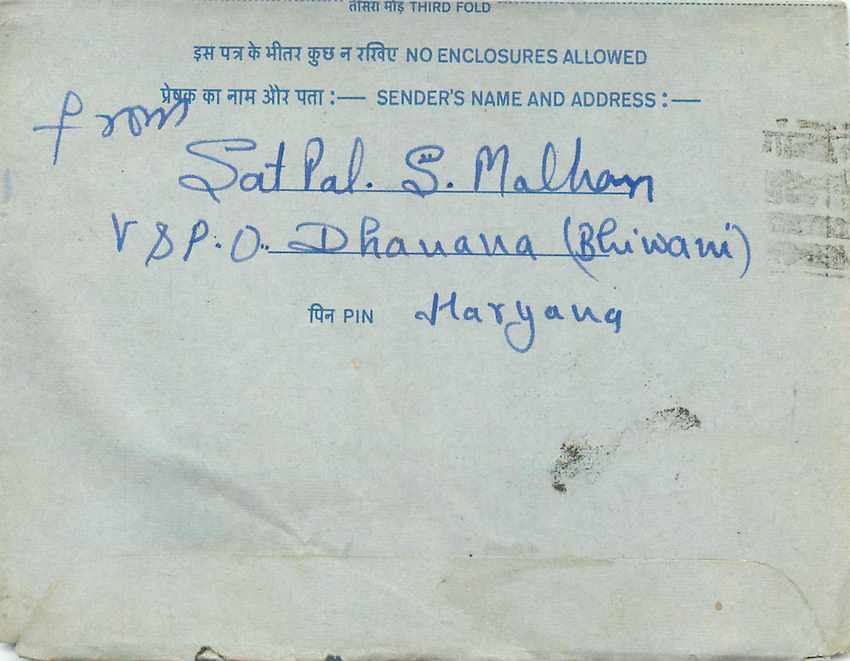 तीसरा मोड़ THIRD FOLD
इस पत्र के भीतर कुछ न रखिए NO ENCLOSURES ALLOWED
प्रेषक का नाम और पता :— SENDER'S NAME AND ADDRESS :—
From
Sat Pal. S. Malhan
V & P. O. Dhanana (Bhiwani)
पिन PIN Haryana